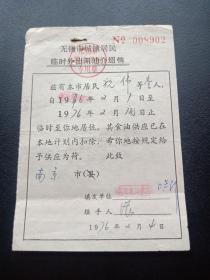 № 008902
无锡市城镇居民
临时外出用油介绍信
兹有本市居民 祝伟 等 壹 人，
自19 76 年 2 月 1 日至
19 76 年 2 月 日止
临时至你地居住。其食油供应已在
本地计划内扣除，希你地按规定给
予供应为荷。 此致
南京 市（县）
填发单位
经手人
19 76 年 2 月 4 日